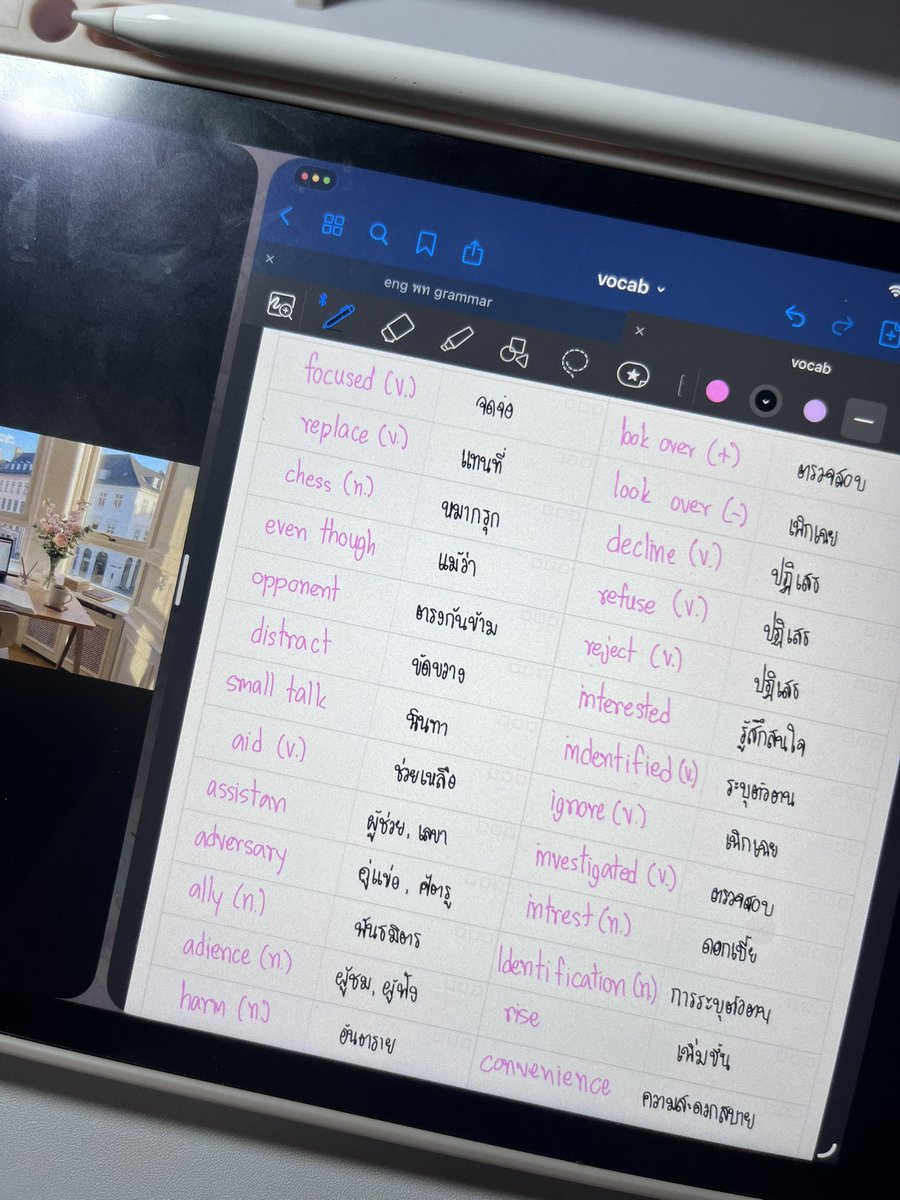 vocab
eng พท grammar
vocab
focused (v.) จดจ่อ
replace (v.) แทนที่
chess (n.) หมากรุก
even though แม้ว่า
opponent ตรงกันข้าม
distract ขัดขวาง
small talk นินทา
aid (v.) ช่วยเหลือ
assistan ผู้ช่วย, เลขา
adversary คู่แข่ง, ศัตรู
ally (n.) พันธมิตร
adience (n.) ผู้ชม, ผู้ฟัง
harm (n.) อันตราย
look over (+) ตรวจสอบ
look over (-) เพิกเฉย
decline (v.) ปฏิเสธ
refuse (v.) ปฏิเสธ
reject (v.) ปฏิเสธ
interested รู้สึกสนใจ
indentified (v.) ระบุตัวตน
ignore (v.) เพิกเฉย
investigated (v.) ตรวจสอบ
intrest (n.) ดอกเบี้ย
Identification (n) การระบุตัวตน
rise เพิ่มขึ้น
convenience ความสะดวกสบาย